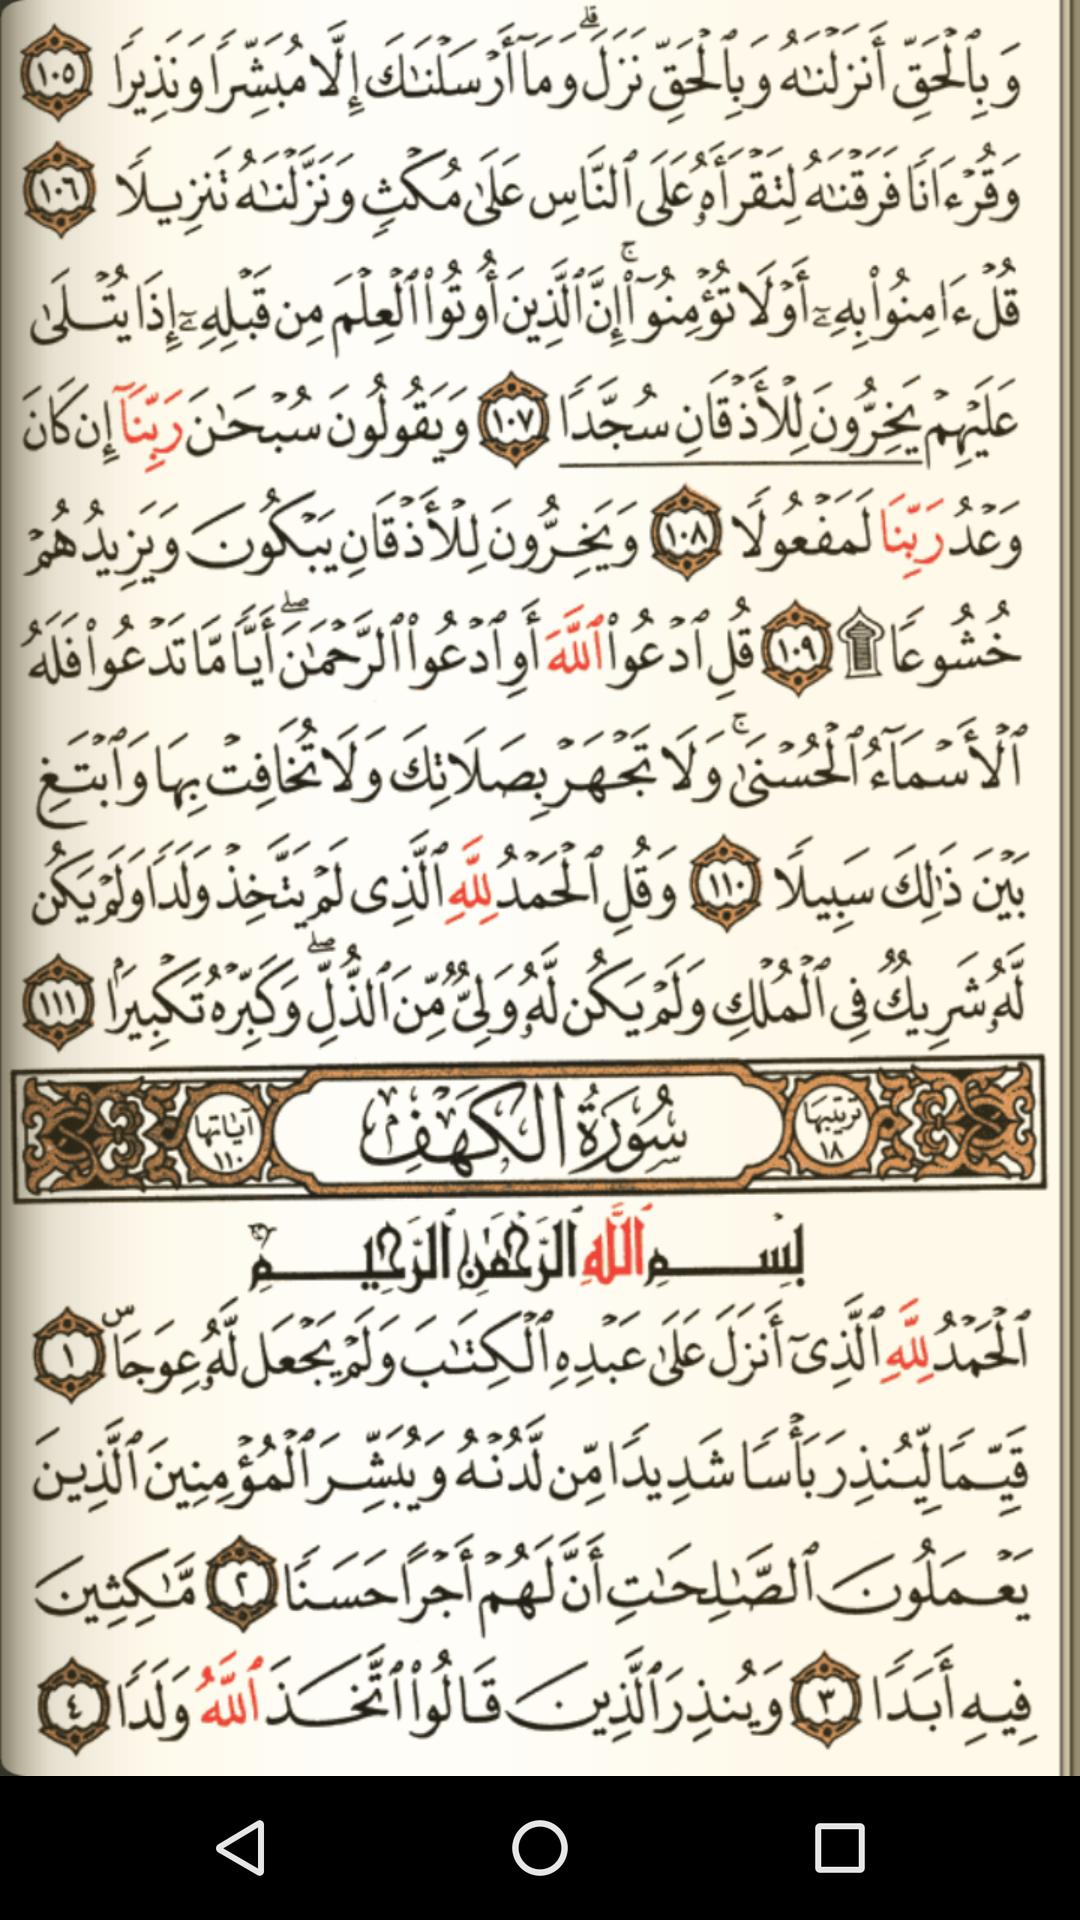 وَبِٱلْحَقِّ أَنزَلْنَـٰهُ وَبِٱلْحَقِّ نَزَلَ ۗ وَمَآ أَرْسَلْنَـٰكَ إِلَّا مُبَشِّرًا وَنَذِيرًا ١٠٥
وَقُرْءَانًا فَرَقْنَـٰهُ لِتَقْرَأَهُۥ عَلَى ٱلنَّاسِ عَلَىٰ مُكْثٍ وَنَزَّلْنَـٰهُ تَنزِيلًا ١٠٦
قُلْ ءَامِنُوا۟ بِهِۦٓ أَوْ لَا تُؤْمِنُوٓا۟ ۚ إِنَّ ٱلَّذِينَ أُوتُوا۟ ٱلْعِلْمَ مِن قَبْلِهِۦٓ إِذَا يُتْلَىٰ
عَلَيْهِمْ يَخِرُّونَ لِلْأَذْقَانِ سُجَّدًا ١٠٧ وَيَقُولُونَ سُبْحَـٰنَ رَبِّنَآ إِن كَانَ
وَعْدُ رَبِّنَا لَمَفْعُولًا ١٠٨ وَيَخِرُّونَ لِلْأَذْقَانِ يَبْكُونَ وَيَزِيدُهُمْ
خُشُوعًا ۩ ١٠٩ قُلِ ٱدْعُوا۟ ٱللَّهَ أَوِ ٱدْعُوا۟ ٱلرَّحْمَـٰنَ ۖ أَيًّا مَّا تَدْعُوا۟ فَلَهُ
ٱلْأَسْمَآءُ ٱلْحُسْنَىٰ ۚ وَلَا تَجْهَرْ بِصَلَاتِكَ وَلَا تُخَافِتْ بِهَا وَٱبْتَغِ
بَيْنَ ذَٰلِكَ سَبِيلًا ١١٠ وَقُلِ ٱلْحَمْدُ لِلَّهِ ٱلَّذِى لَمْ يَتَّخِذْ وَلَدًا وَلَمْ يَكُن
لَّهُۥ شَرِيكٌ فِى ٱلْمُلْكِ وَلَمْ يَكُن لَّهُۥ وَلِىٌّ مِّنَ ٱلذُّلِّ ۖ وَكَبِّرْهُ تَكْبِيرًۢا ١١١
ترتيبها ١٨ سُورَةُ الكَهْفِ آياتها ١١٠
بِسْمِ ٱللَّهِ ٱلرَّحْمَـٰنِ ٱلرَّحِيمِ
ٱلْحَمْدُ لِلَّهِ ٱلَّذِىٓ أَنزَلَ عَلَىٰ عَبْدِهِ ٱلْكِتَـٰبَ وَلَمْ يَجْعَل لَّهُۥ عِوَجَاۜ ١
قَيِّمًا لِّيُنذِرَ بَأْسًا شَدِيدًا مِّن لَّدُنْهُ وَيُبَشِّرَ ٱلْمُؤْمِنِينَ ٱلَّذِينَ
يَعْمَلُونَ ٱلصَّـٰلِحَـٰتِ أَنَّ لَهُمْ أَجْرًا حَسَنًا ٢ مَّـٰكِثِينَ
فِيهِ أَبَدًا ٣ وَيُنذِرَ ٱلَّذِينَ قَالُوا۟ ٱتَّخَذَ ٱللَّهُ وَلَدًا ٤